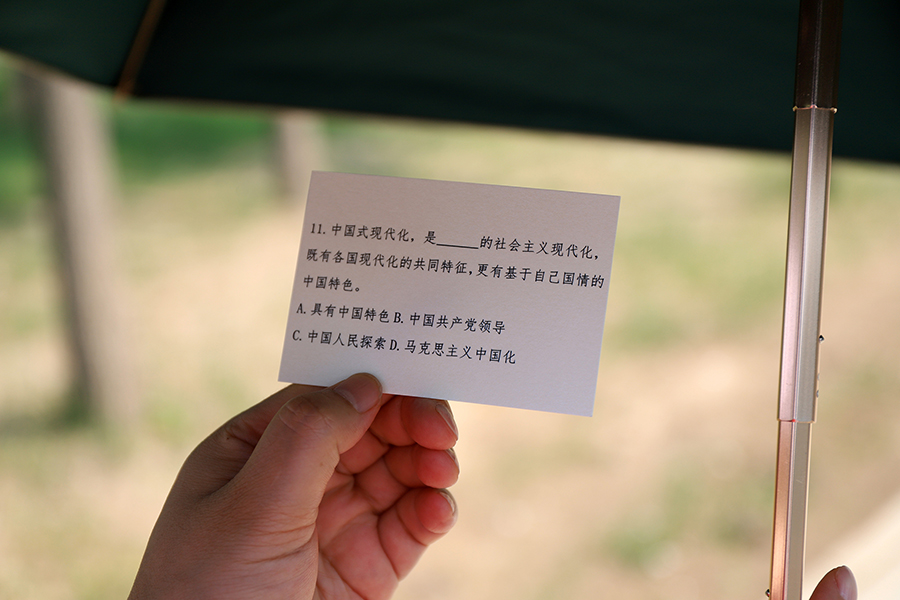 11. 中国式现代化，是______的社会主义现代化，
既有各国现代化的共同特征，更有基于自己国情的
中国特色。
A. 具有中国特色 B. 中国共产党领导
C. 中国人民探索 D. 马克思主义中国化